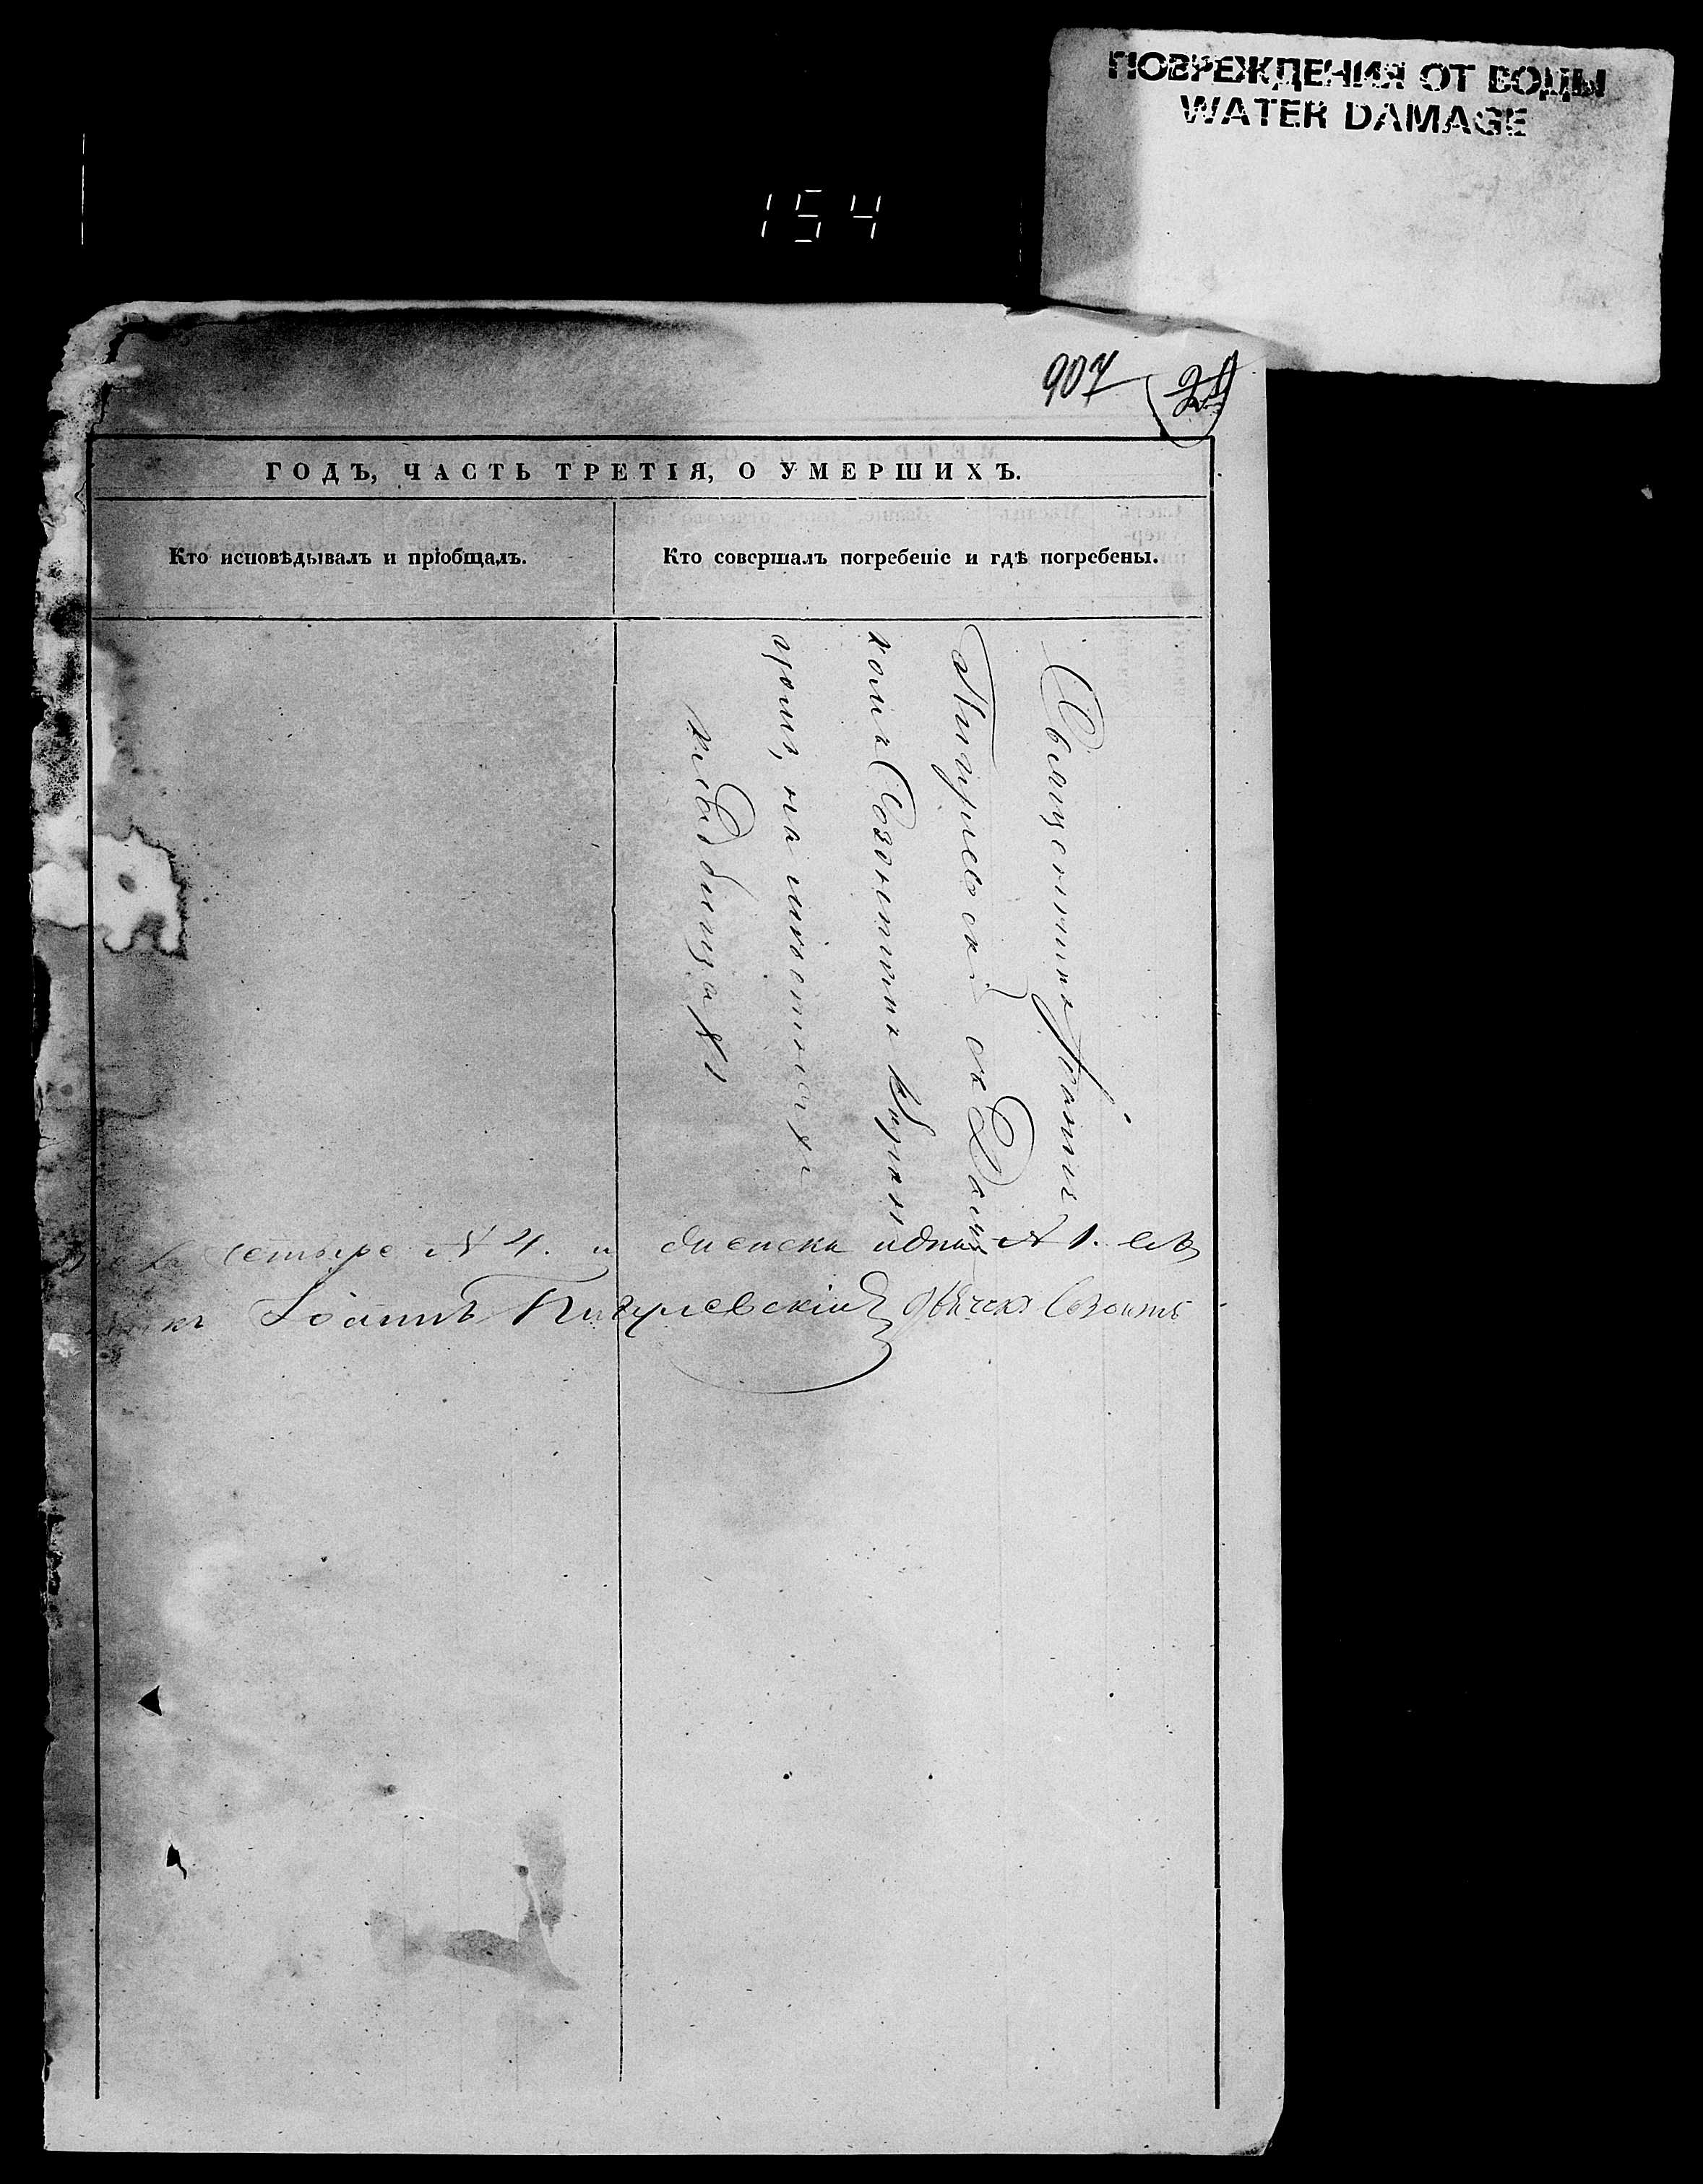 ПОВРЕЖДЕНИЯ ОТ ВОДЫ
WATER DAMAGE
154
907
ГОДЪ, ЧАСТЬ ТРЕТІЯ, О УМЕРШИХЪ.
Кто исповѣдывалъ и пріобщалъ.
Кто совершалъ погребеніе и гдѣ погребены.
Священникъ Іоаннъ
Пигулевскій съ Дья
комъ Созонтомъ
на мѣстныхъ
кладбищахъ
четыре № 4. и женска одна № 1.
Іоаннъ Пигулевскій Дьячекъ Созонтъ